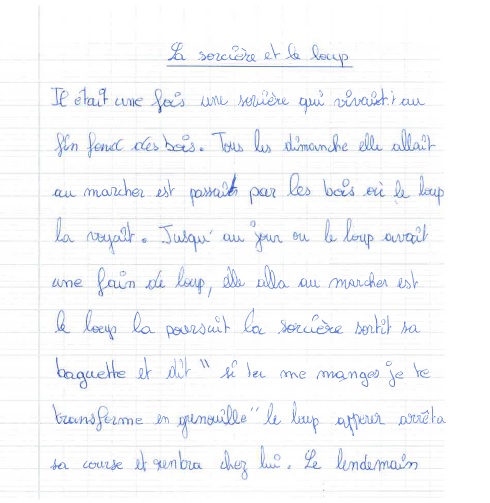 La sorcière et le loup
Il était une fois une sorière qui vivait au
fin fond des bois. Tous les dimanche elle allait
au marcher est passait par les bois où le loup
la voyait. Jusqu' au jour ou le loup avait
une fain de loup, elle alla au marcher est
le loup la poursuit la sorcière sortit sa
baguette et dit " si tu me manges je te
transforme en grenouille " le loup appeur arrêta
sa course et rentra chez lui. Le lendemain